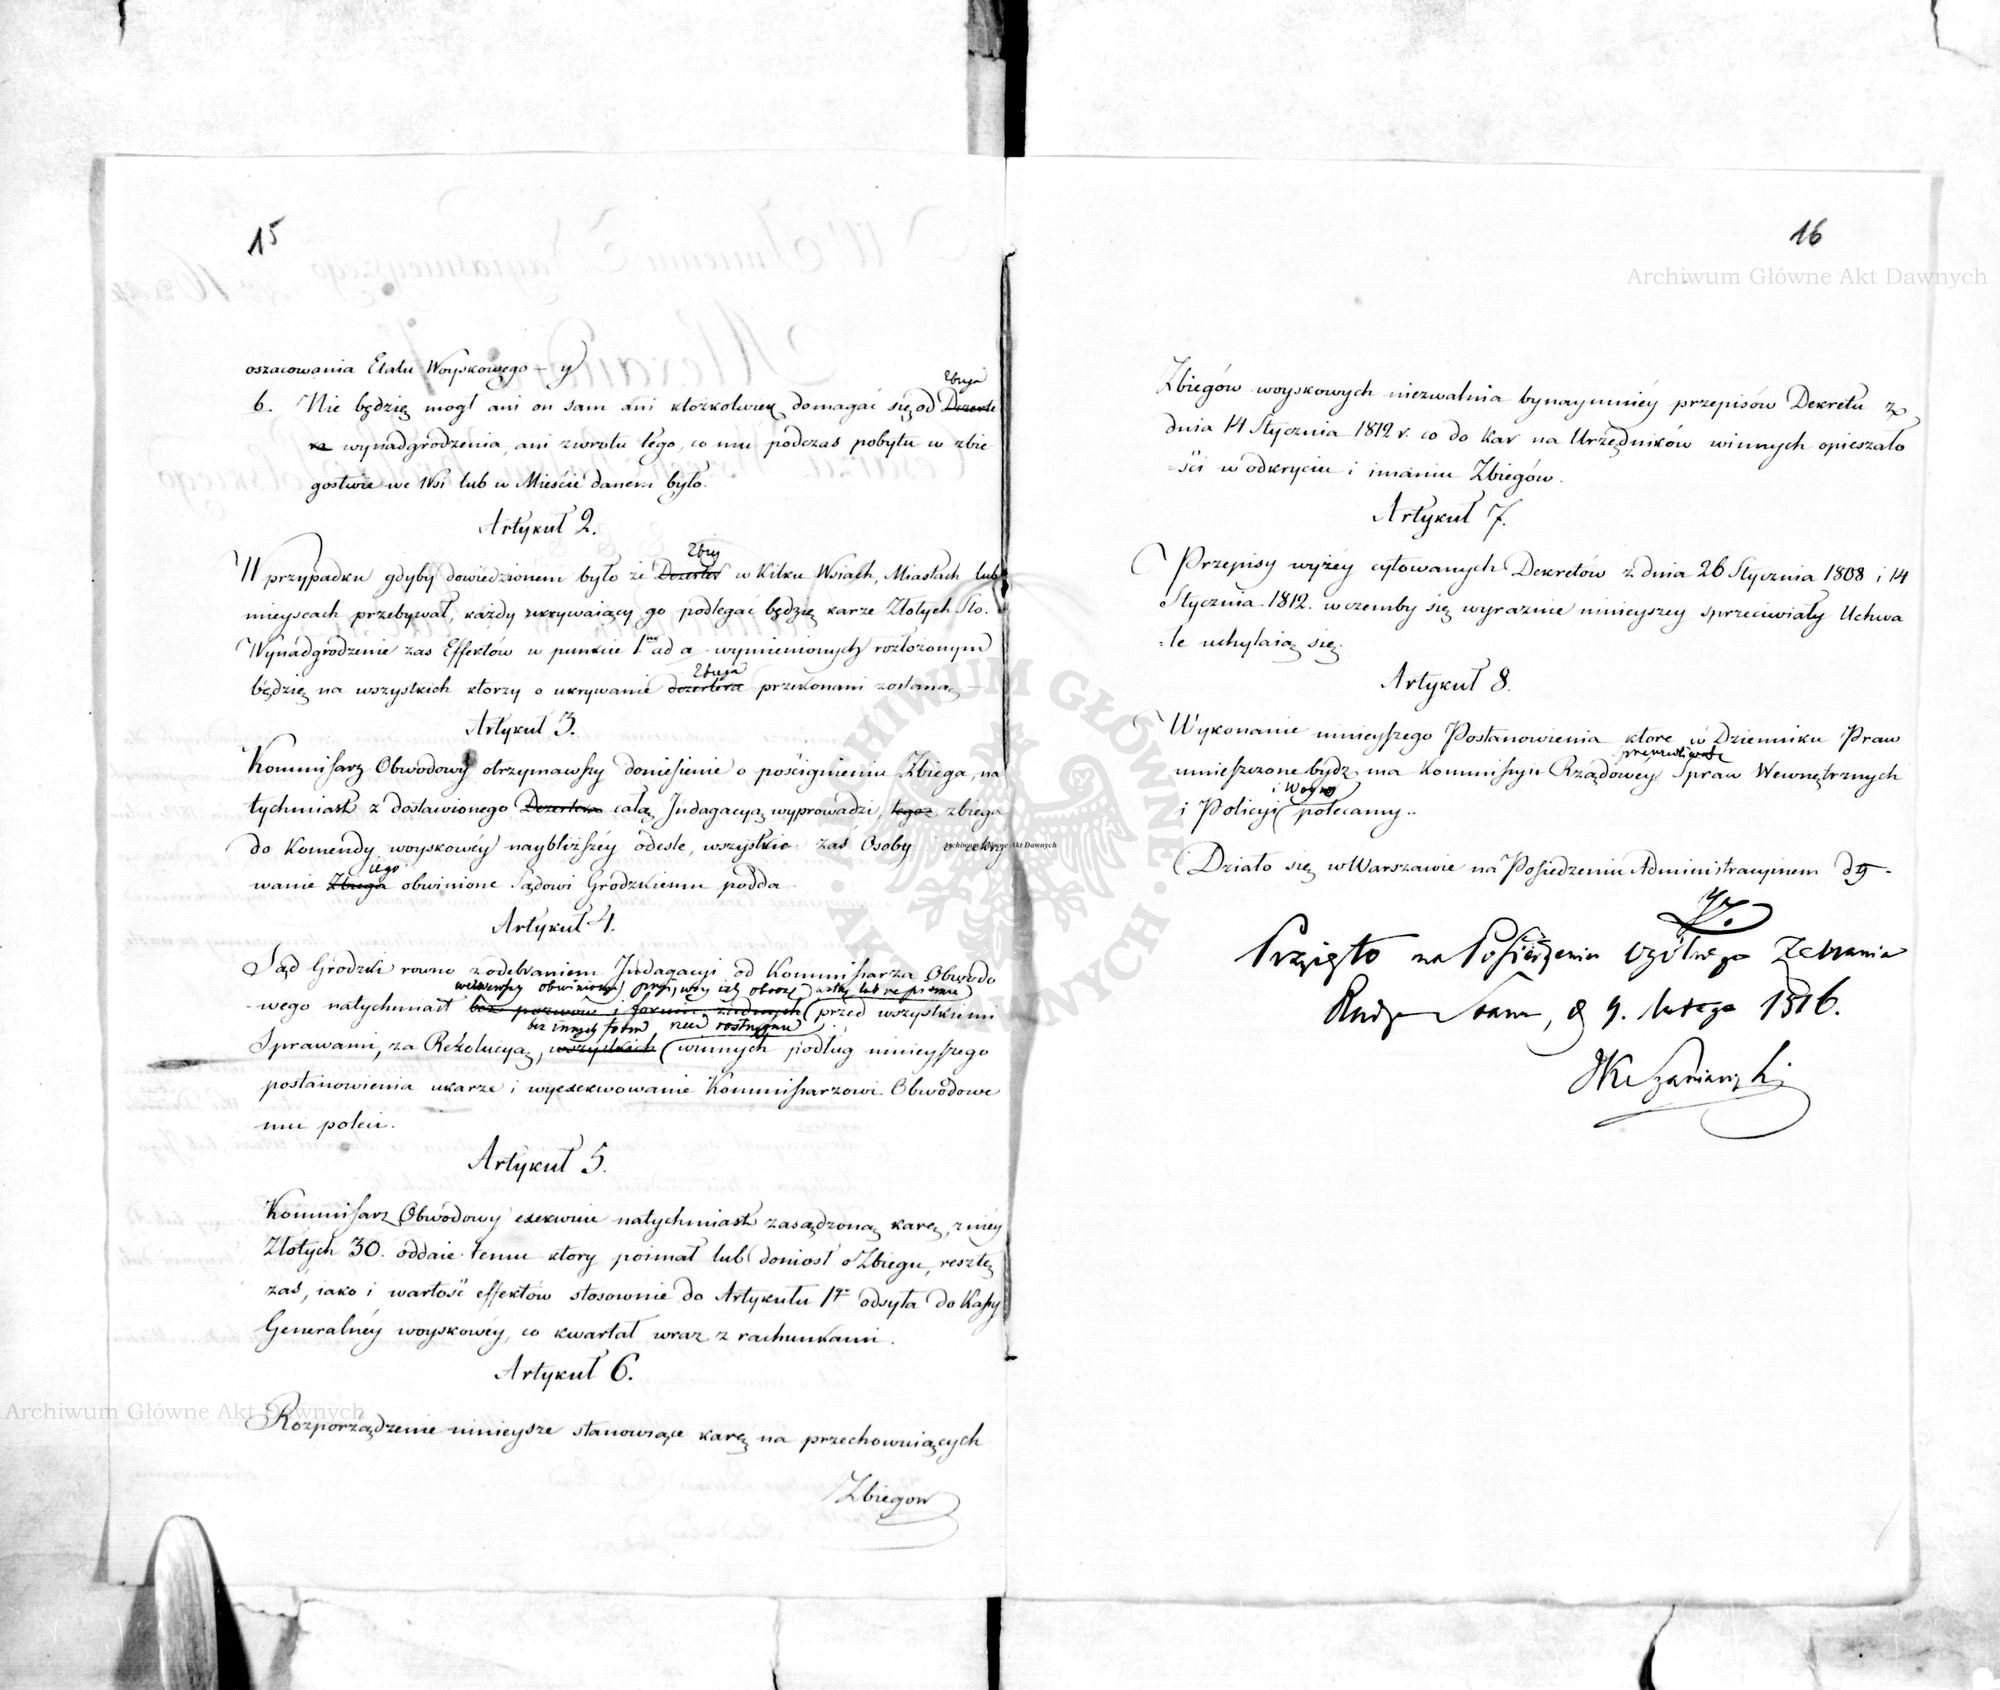 15
oszacowania Etatu Woyskowego – y
Zbiega
6. Nie będzie mogł ani on sam ani ktożkolwiek domagać się od Dezerte
ra wynadgrodzenia, ani zwrotu tego, co mu podczas pobytu w zbie
gostwie we Wsi lub w Mieście danem było.
Artykuł 2.
Zbieg
W przypadku gdyby dowiedzionem było że Dezerter w kilku Wsiach, Miastach lub
mieyscach przebywał, każdy ukrywaiący go podlegać będzie karze Złotych Sto.
Wynadgrodzenie zas Effektów w punkcie 1. ad a wymienionych rozłożonym
Zbiega
będzie na wszystkich ktorzy o ukrywanie dezertera przekonani zostaną –
Artykuł 3.
Kommissarz Obwodowy otrzymawszy doniesienie o poścignieniu Zbiega, na
tychmiast z dostawionego Dezertera całą Indagacyą wyprowadzi, tegoż zbiega
do Komendy woyskowéy naybliższéy odesle, wszystkie zaś Osoby o ukry
iego
wanie Zbiega obwinione Sądowi Grodzkiemu podda.
Artykuł 4.
Sąd Grodzki rowno z odebraniem Indagacyi od Kommissarza Obwodo
wezwawszy obwinionych przy ich obronę ustną lub na pismie
wego natychmiast bez pozwow i forum żadnych przed wszystkiemi
bez innych form, rzecz rostrzygnie
Sprawami, za Rezolucyą, wszystkich winnych podług ninieyszego
postanowienia ukarze i wyexekwowanie Kommissarzowi Obwodowe
mu poleci.
Artykuł 5.
Kommissarz Obwodowy exekwuie natychmiast zasądzoną karę, z niéy
Złotych 30. oddaie temu ktory poimał lub doniosł o Zbiegu, resztę
zaś, iako i wartość effektów stosownie do Artykułu 1go odsyła do Kassy
Generalnéy woyskowéy, co kwartał wraz z rachunkami.
Artykuł 6.
Rozporządzenie ninieysze stanowiące karę na przechowuiących
Zbiegow
16
Zbiegów woyskowych niezwalnia bynaymniéy przepisów Dekretu z
dnia 14 Stycznia 1812 r. co do kar na Urzędników winnych opieszało
ści w odkryciu i imaniu Zbiegów.
Artykuł 7.
Przepisy wyżéy cytowanych Dekretów z dnia 26 Stycznia 1808 i 14
Stycznia 1812. w czemby się wyraznie ninieyszey sprzeciwiały Uchwa
le uchylaią się.
Artykuł 8.
Wykonanie ninieyszego Postanowienia które w Dzienniku Praw
umieszczone bydź ma Kommissyi Rządowey Spraw Wewnętrznych
i Woyny
i Policyi polecamy..
Działo się w Warszawie na Posiedzeniu Administracyinem d 9.
Przyięto na Posiedzeniu Ogólnego Zebrania
Rady Stanu, d 9. lutego 1816.
Archiwum Główne Akt Dawnych
Archiwum Główne Akt Dawnych
Archiwum Główne Akt Dawnych
ARCHIWUM GŁÓWNE · AKT DAWNYCH ·